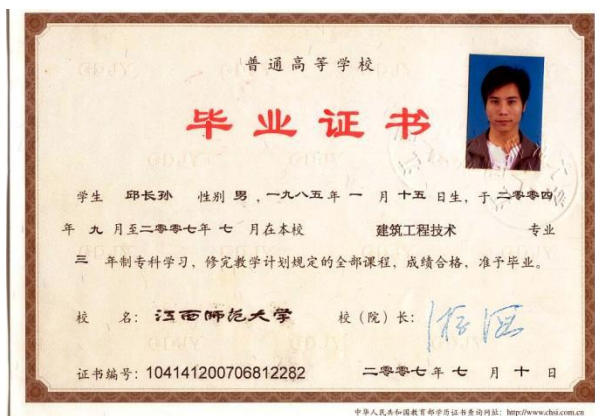 普通高等学校
毕业证书
学生 邱长孙 性别 男 ，一九八五年 一 月 十五 日生，于 二零零四
年 九 月至二零零七年 七 月在本校 建筑工程技术 专业
三 年制专科学习，修完教学计划规定的全部课程，成绩合格，准予毕业。
校 名：江西师范大学 校（院）长：
证书编号：104141200706812282 二零零七年 七 月 十 日
中华人民共和国教育部学历证书查询网址：http://www.chsi.com.cn